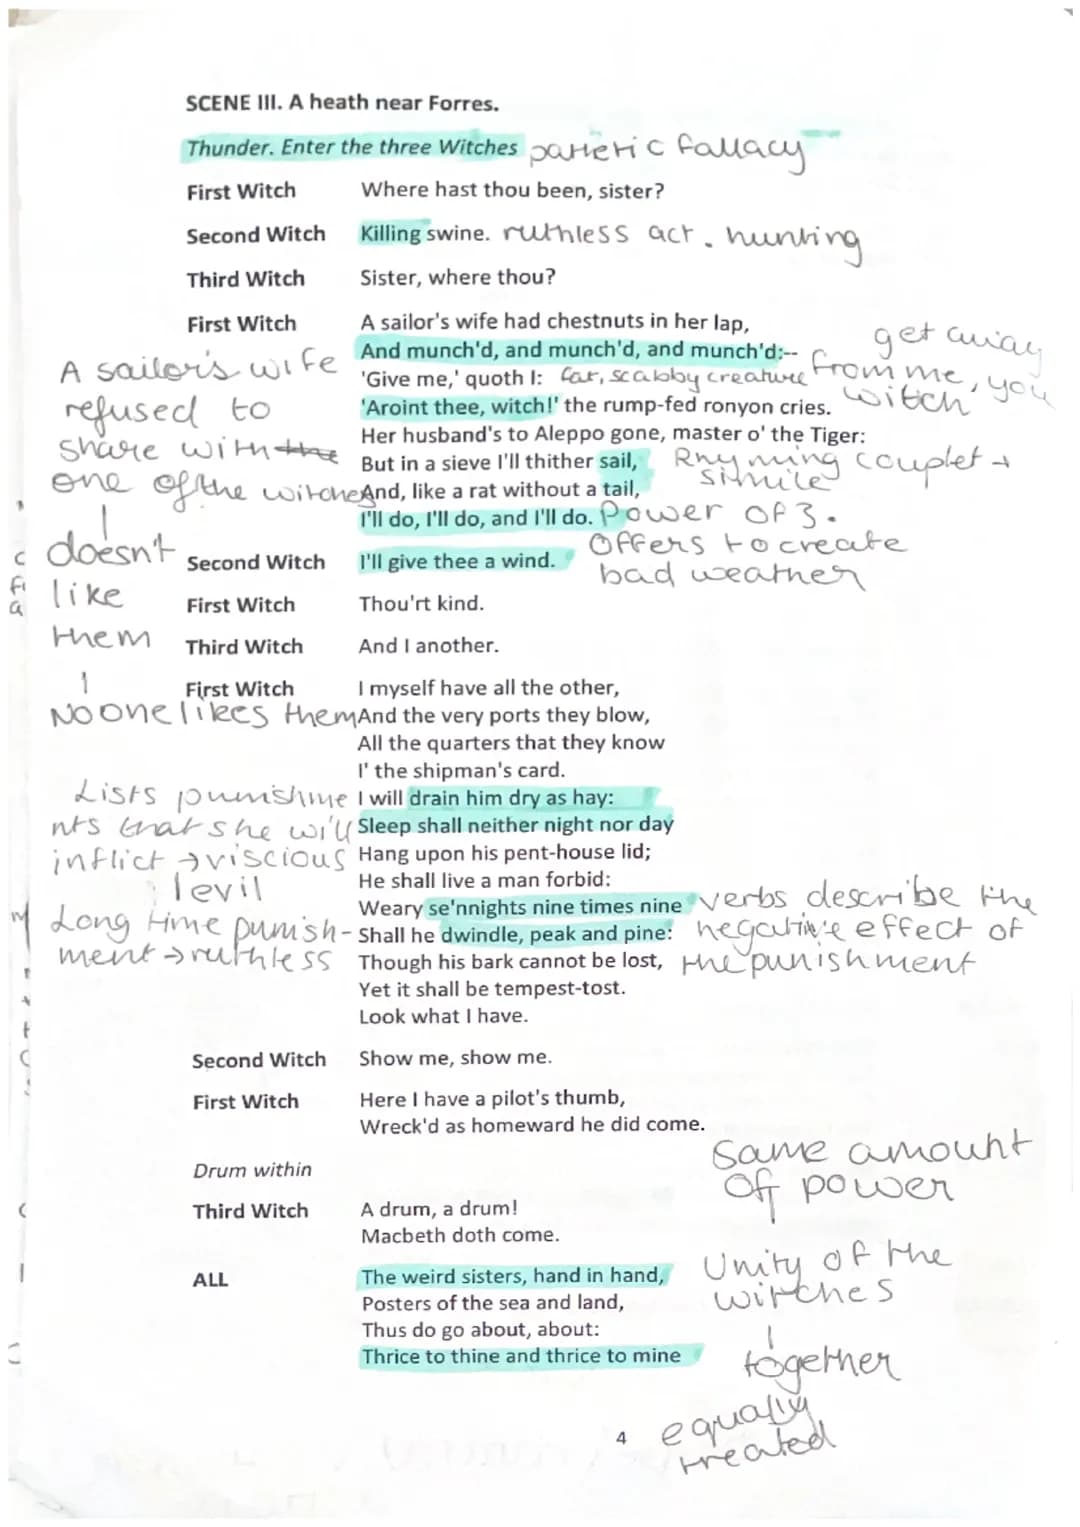 SCENE III. A heath near Forres.
Thunder. Enter the three Witches patheric fallacy
First Witch Where hast thou been, sister?
Second Witch Killing swine. ruthless act. hunting
Third Witch Sister, where thou?
First Witch A sailor's wife had chestnuts in her lap,
And munch'd, and munch'd, and munch'd:--
'Give me,' quoth I: fat, scabby creature
'Aroint thee, witch!' the rump-fed ronyon cries.
get away
from me, you
witch'
Her husband's to Aleppo gone, master o' the Tiger:
But in a sieve I'll thither sail, Rhyming couplet →
simile
And, like a rat without a tail,
I'll do, I'll do, and I'll do. Power of 3.
A sailor's wife
refused to
share with the
one of the witches
doesn't
like
them
No one likes them
Second Witch I'll give thee a wind. Offers to create
bad weather
First Witch Thou'rt kind.
Third Witch And I another.
First Witch I myself have all the other,
And the very ports they blow,
All the quarters that they know
I' the shipman's card.
I will drain him dry as hay:
Sleep shall neither night nor day
Hang upon his pent-house lid;
He shall live a man forbid:
Weary se'nnights nine times nine
Shall he dwindle, peak and pine:
Though his bark cannot be lost,
Yet it shall be tempest-tost.
Look what I have.
Lists punishme
nts that she will
inflict → viscious
levil
Long time punish-
ment → ruthless
verbs describe the
negative effect of
the punishment
Second Witch Show me, show me.
First Witch Here I have a pilot's thumb,
Wreck'd as homeward he did come.
Drum within
Third Witch A drum, a drum!
Macbeth doth come.
ALL The weird sisters, hand in hand,
Posters of the sea and land,
Thus do go about, about:
Thrice to thine and thrice to mine
Same amount
of power
Unity of the
witches
together
equally
treated
4